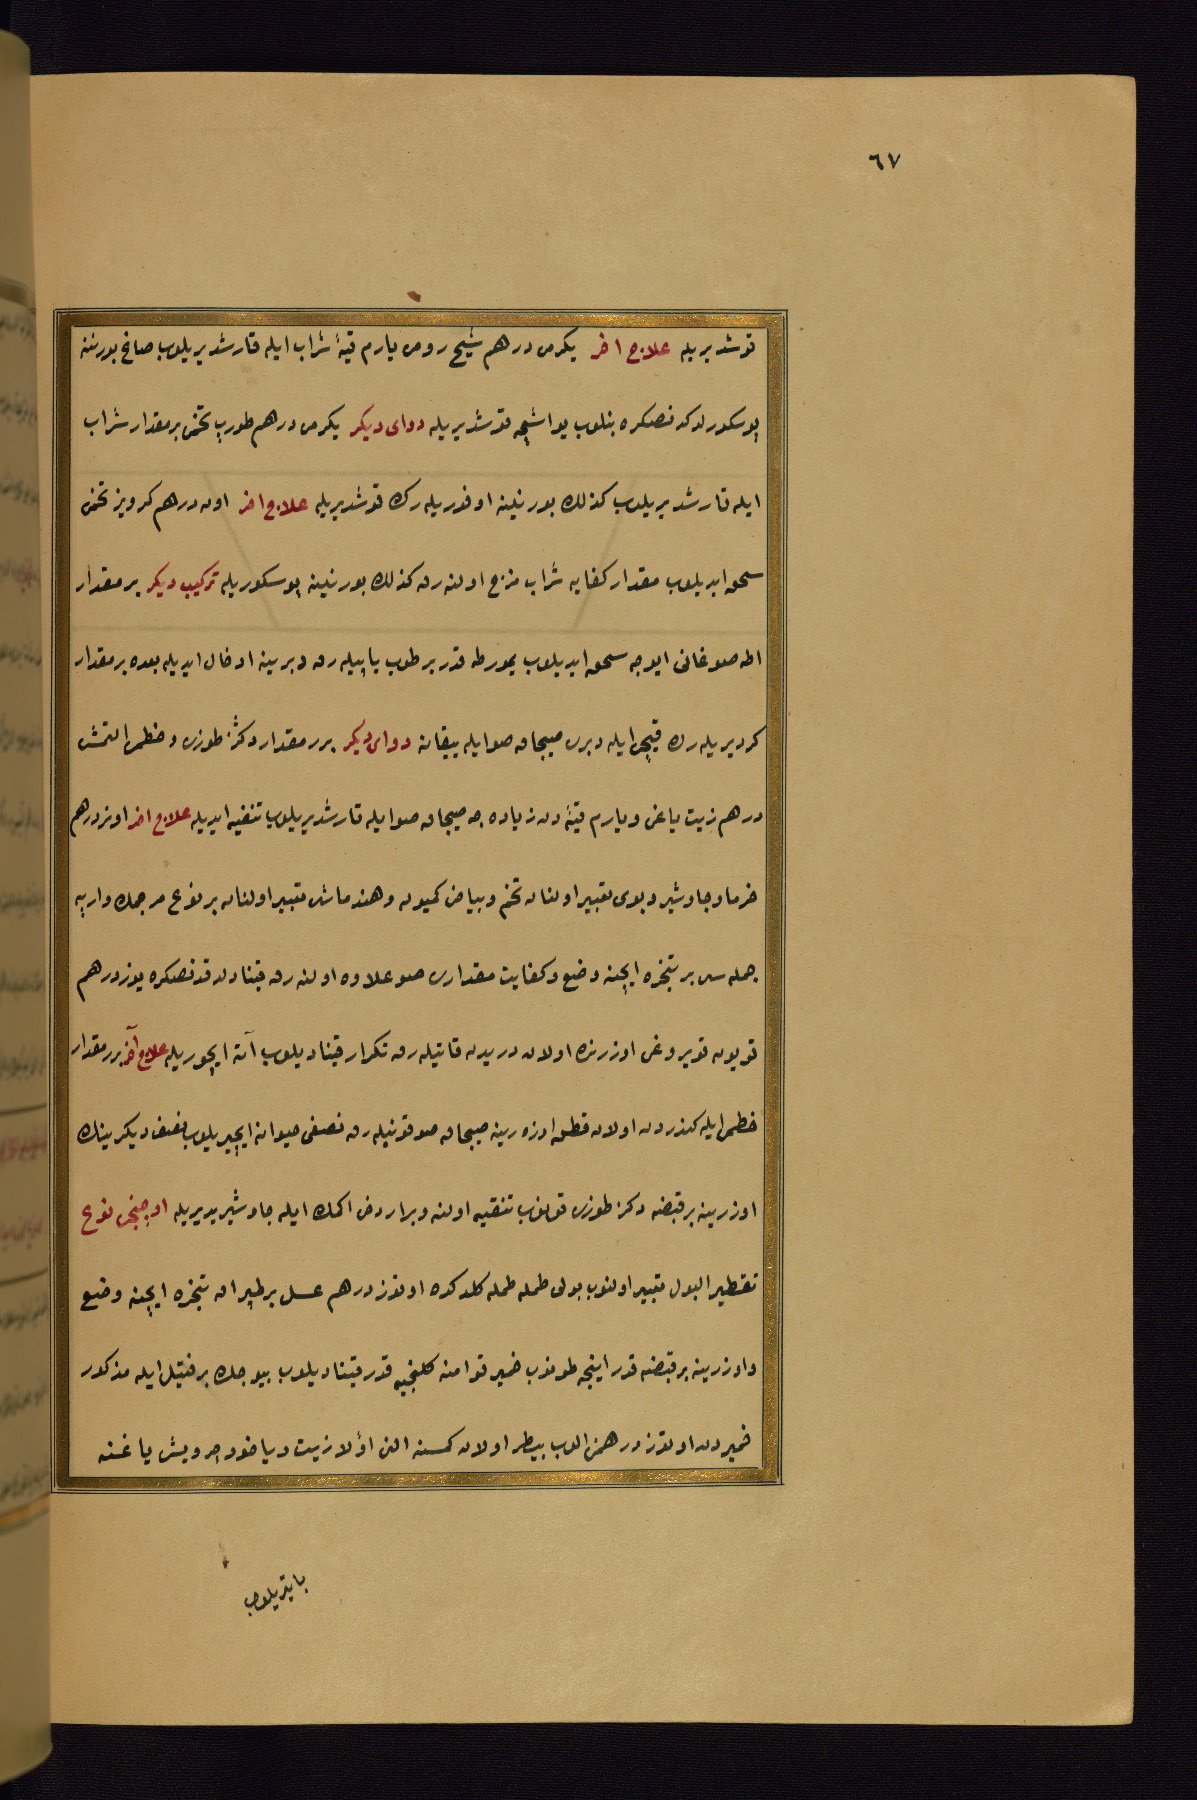 ٦٧
قوشدیریله علاج اخر یکرمی درهم شیح رومی یارم قیهٔ شراب ایله قارشدیریلوب صاغ بورننه
پوسکورلدکدنصکره بنلوب یواشجه قوشدیریله دوای دیکر یکرمی درهم طورپ تخمی برمقدار شراب
ایله قارشدیریلوب کذلك بورنینه اوفوریله رك قوشدیریله علاج اخر اون درهم کرویز تخمی
سحق ایدیلوب مقدار کفایه شراب مزج اولنه رق کذلك بورنینه پوسکوریله ترکیب دیکر بر مقدار
اطه صوغانی ایوجه سحق ایدیلوب یمورطه قدر بر طوپ یاپیله رق دبرینه ادخال ایدیله بعده بر مقدار
کزدیریله رك قیچی ایله دبری صیجاق صو ایله ییقانه دوای دیکر برر مقدار دکز طوزی وخطمی التمش
درهم زیت یاغی ویارم قیهٔ دن زیاده جه صیجاق صو ایله قارشدیریلوب تنقیه ایدیله علاج اخر اوتوزدرهم
خرما وجاوشیر وبوی تعبیر اولنان تخم وبیاض کمیون وهند ماشی تعبیر اولنان بر نوع مرجمك وارپه
جمله سی بر تنجره ایچنه وضع وکفایت مقداری صو علاوه اولنه رق قینادلدقدنصکره یوز درهم
قویون قویروغی اوزرنده اولان دریدن قاتیله رق تکرار قینادیلوب آته ایچوریله علاج آخر برر مقدار
خطمی ایله کندردن اولان قطعه اوزه رینه صیجاق صو قونیله رق نصفی حیوانه ایچیریلوب نصف دیکرینك
اوزرینه بر قبضه دکز طوزی قونلوب تنقیه اولنه وبرار دخی اکمك ایله جاوشیر یدیریله اوچنجی نوع
تقطیر البول تعبیر اولنوب بولی طمله طمله کلدکده اوتوز درهم عسل بر طپراق تنجره ایچنه وضع
واوزرینه بر قبضه قدر اینجه طوز قونلوب خمیر قوامنه کلنجیه قدر قینادیلوب بیوجك بر فتیل ایله مذکور
خمیردن اوتوز درهمی الوب بیطر اولان کمسنه النی اولا زیت ویاخود چرویش یاغنه
باتیریلوب